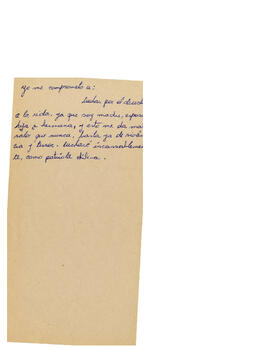 Yo me comprometo a:
luchar por el derech
a la vida, ya que soy madre, espos
hija y hermana, y esto me da mas
razón que nunca, basta ya de violen
cia y terror. Lucharé incansablemen
te, como patriota chilena.